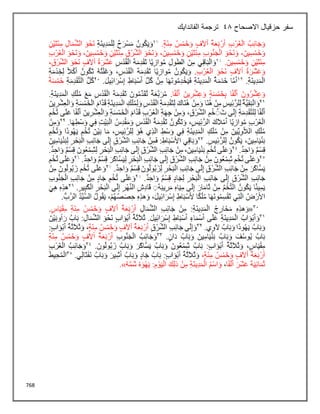 وَجَانِبِ الْغَرْبِ أَرْبَعَةَ آلاَفٍ وَخَمْسَ مِئَةٍ. ١٧وَيَكُونُ مَسْرَحٌ لِلْمَدِينَةِ نَحْوَ الشِّمَالِ مِئَتَيْنِ
وَخَمْسِينَ، وَنَحْوَ الْجَنُوبِ مِئَتَيْنِ وَخَمْسِينَ، وَنَحْوَ الشَّرْقِ مِئَتَيْنِ وَخَمْسِينَ، وَنَحْوَ الْغَرْبِ مِئَتَيْنِ
وَخَمْسِينَ. ١٨وَالْبَاقِي مِنَ الطُّولِ مُوازِيًا تَقْدِمَةَ الْقُدْسِ عَشَرَةُ آلاَفٍ نَحْوَ الشَّرْقِ،
وَعَشَرَةُ آلاَفٍ نَحْوَ الْغَرْبِ. وَيَكُونُ مُوازِيًا تَقْدِمَةَ الْقُدْسِ، وَغَلَّتُهُ تَكُونُ أَكْلاً لِخِدْمَةِ
الْمَدِينَةِ. ١٩أَمَّا خَدَمَةُ الْمَدِينَةِ فَيَخْدِمُونَهَا مِنْ كُلِّ أَسْبَاطِ إِسْرَائِيلَ. ٢٠كُلُّ التَّقْدِمَةِ خَمْسَةٌ
وَعِشْرُونَ أَلْفًا بِخَمْسَةٍ وَعِشْرِينَ أَلْفًا. مُرَبَّعَةً تُقَدِّمُونَ تَقْدِمَةَ الْقُدْسِ مَعَ مُلْكِ الْمَدِينَةِ.
٢١وَالْبَقِيَّةُ لِلرَّئِيسِ مِنْ هُنَا وَمِنْ هُنَاكَ لِتَقْدِمَةِ الْقُدْسِ وَلِمُلْكِ الْمَدِينَةِ قُدَّامَ الْخَمْسَةِ وَالْعِشْرِينَ
أَلْفًا لِلتَّقْدِمَةِ إِلَى تُخُمِ الشَّرْقِ، وَمِنْ جِهَةِ الْغَرْبِ قُدَّامَ الْخَمْسَةِ وَالْعِشْرِينَ أَلْفًا عَلَى تُخُمِ
الْغَرْبِ مُوازِيًا أَمْلاَكَ الرَّئِيسِ، وَتَكُونُ تَقْدِمَةُ الْقُدْسِ وَمَقْدِسُ الْبَيْتِ فِي وَسَطِهَا. ٢٢وَمِنْ
مُلْكِ اللاَّوِيِّينَ مِنْ مُلْكِ الْمَدِينَةِ فِي وَسَطِ الَّذِي هُوَ لِلرَّئِيسِ، مَا بَيْنَ تُخُمِ يَهُوذَا وَتُخُمِ
بِنْيَامِينَ، يَكُونُ لِلرَّئِيسِ. ٢٣وَبَاقِي الأَسْبَاطِ: فَمِنْ جَانِبِ الشَّرْقِ إِلَى جَانِبِ الْبَحْرِ لِبِنْيَامِينَ
قِسْمٌ وَاحِدٌ. ٢٤وَعَلَى تُخُمِ بِنْيَامِينَ، مِنْ جَانِبِ الشَّرْقِ إِلَى جَانِبِ الْبَحْرِ لِشِمْعُونَ قِسْمٌ وَاحِدٌ.
٢٥وَعَلَى تُخُمِ شِمْعُونَ مِنْ جَانِبِ الشَّرْقِ إِلَى جَانِبِ الْبَحْرِ لِيَسَّاكَرَ قِسْمٌ وَاحِدٌ. ٢٦وَعَلَى تُخُمِ
يَسَّاكَرَ مِنْ جَانِبِ الشَّرْقِ إِلَى جَانِبِ الْبَحْرِ لِزَبُولُونَ قِسْمٌ وَاحِدٌ. ٢٧وَعَلَى تُخُمِ زَبُولُونَ مِنْ
جَانِبِ الشَّرْقِ إِلَى جَانِبِ الْبَحْرِ لِجَادٍ قِسْمٌ وَاحِدٌ. ٢٨وَعَلَى تُخُمِ جَادٍ مِنْ جَانِبِ الْجَنُوبِ
يَمِينًا يَكُونُ التُّخُمُ مِنْ ثَامَارَ إِلَى مِيَاهِ مَرِيبَةِ قَادِشِ النَّهْرِ إِلَى الْبَحْرِ الْكَبِيرِ. ٢٩هذِهِ هِيَ
الأَرْضُ الَّتِي تَقْسِمُونَهَا مُلْكًا لأَسْبَاطِ إِسْرَائِيلَ، وَهذِهِ حِصَصُهُمْ، يَقُولُ السَّيِّدُ الرَّبُّ.
٣٠«وَهذِهِ مَخَارِجُ الْمَدِينَةِ: مِنْ جَانِبِ الشِّمَالِ أَرْبَعَةُ آلاَفٍ وَخَمْسُ مِئَةِ مِقْيَاسٍ.
٣١وَأَبْوَابُ الْمَدِينَةِ عَلَى أَسْمَاءِ أَسْبَاطِ إِسْرَائِيلَ. ثَلاَثَةُ أَبْوَابٍ نَحْوَ الشِّمَالِ: بَابُ رَأُوبَيْنَ
وَبَابُ يَهُوذَا وَبَابُ لاَوِي. ٣٢وَإِلَى جَانِبِ الشَّرْقِ أَرْبَعَةُ آلاَفٍ وَخَمْسُ مِئَةٍ، وَثَلاَثَةُ أَبْوَابٍ:
بَابُ يُوسُفَ وَبَابُ بِنْيَامِينَ وَبَابُ دَانٍ. ٣٣وَجَانِبُ الْجَنُوبِ أَرْبَعَةُ آلاَفٍ وَخَمْسُ مِئَةِ
مِقْيَاسٍ، وَثَلاَثَةُ أَبْوَابٍ: بَابُ شِمْعُونَ وَبَابُ يَسَّاكَرَ وَبَابُ زَبُولُونَ. ٣٤وَجَانِبُ الْغَرْبِ
أَرْبَعَةُ آلاَفٍ وَخَمْسُ مِئَةٍ، وَثَلاَثَةُ أَبْوَابٍ: بَابُ جَادٍ وَبَابُ أَشِيرَ وَبَابُ نَفْتَالِي. ٣٥الْمُحِيطُ
ثَمَانِيَةَ عَشَرَ أَلْفًا، وَاسْمُ الْمَدِينَةِ مِنْ ذلِكَ الْيَوْمِ: يَهْوَهْ شَمَّهْ».
768
سفر حزقيال الاصحاح ٤٨ ترجمة الفاندايك